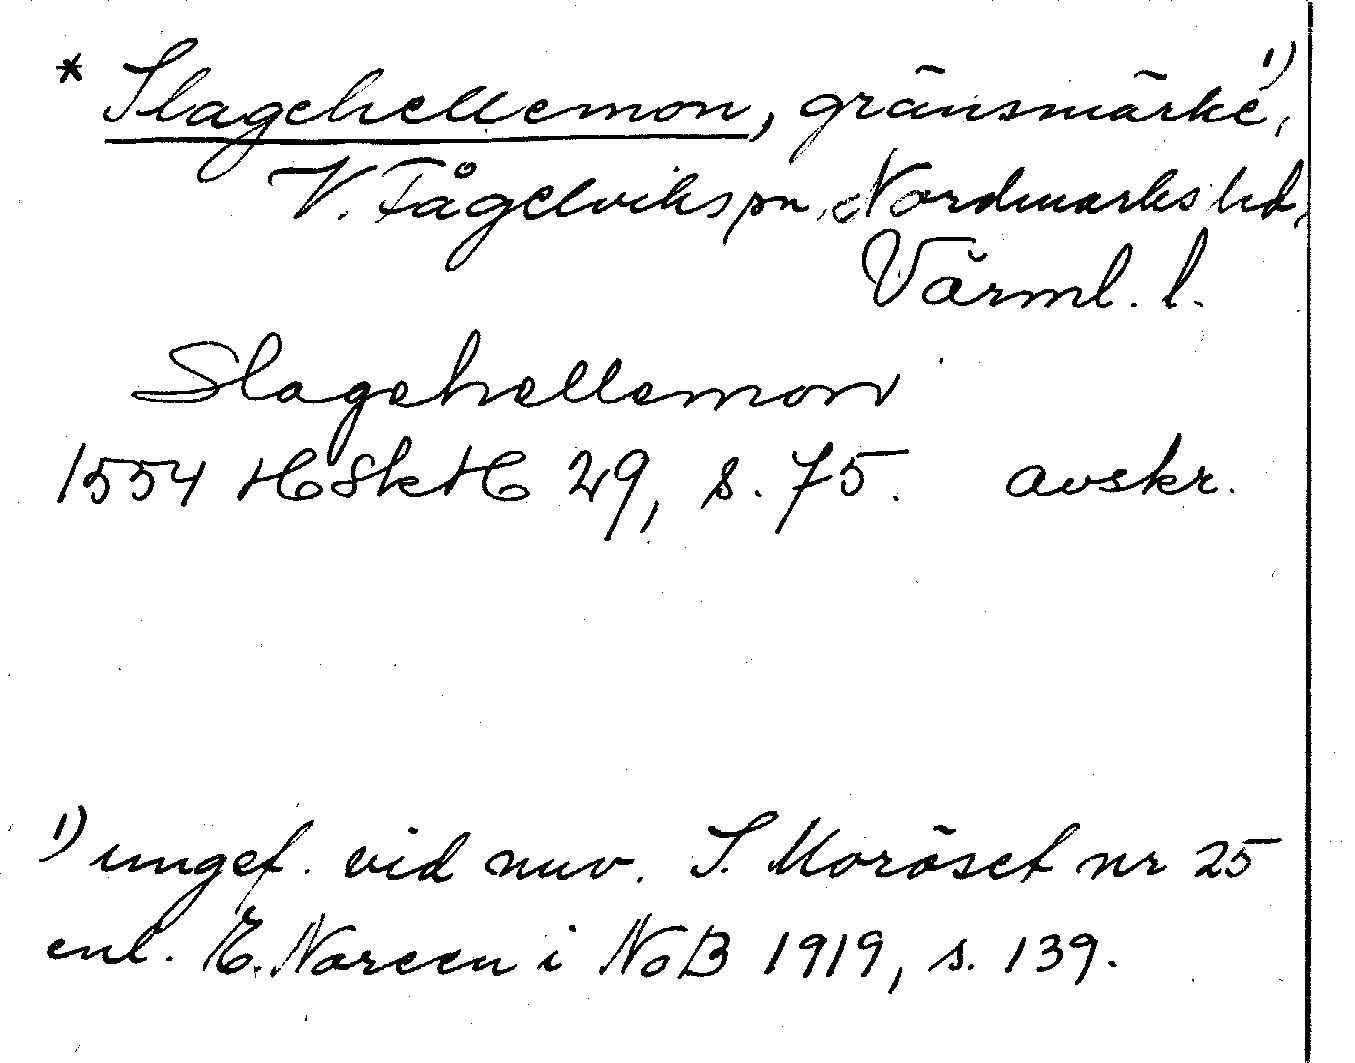 * Slagehellemon, gränsmärke 1),
V. Fågelviks sn, Nordmarks hd,
Värml. l.
Slagehellemon
1554 HSkH 29, s. 75. avskr.
1) ungef. vid nuv. S. Moröset nr 25
enl. E. Noreen i NoB 1919, s. 139.